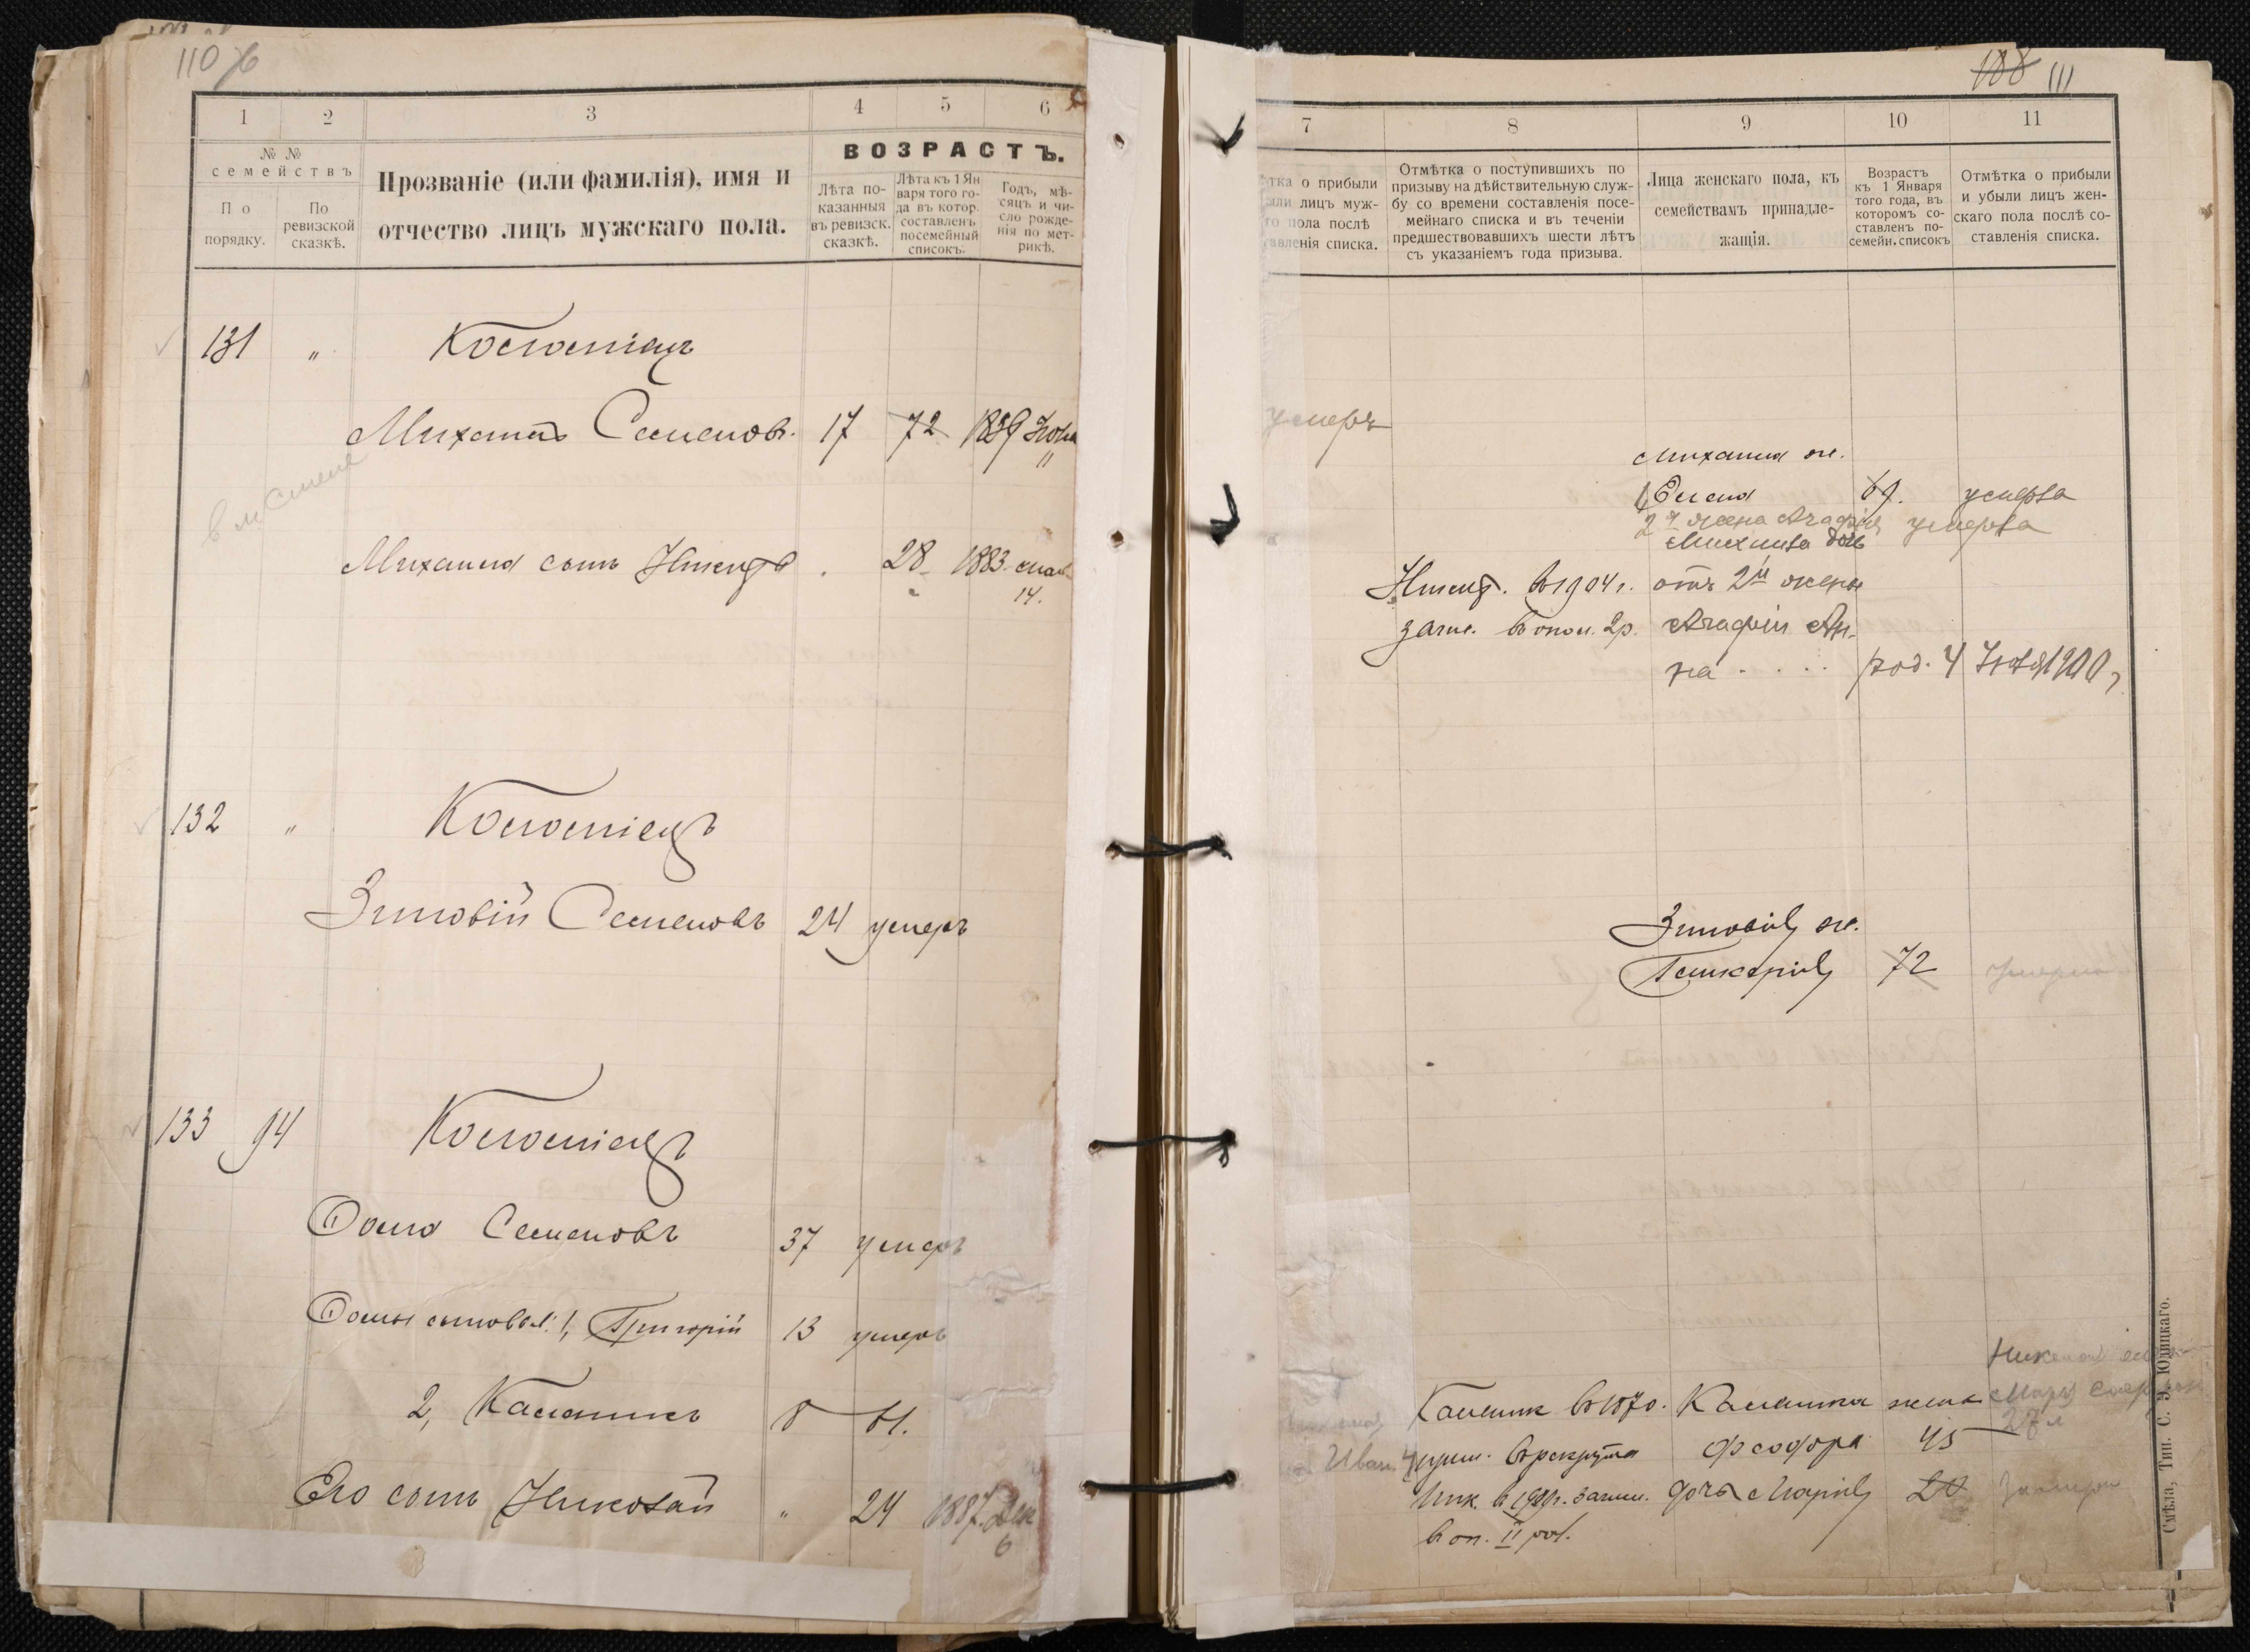 110 б
1 2 3 4 5 6
№ №
семействъ
По
порядку.
По
ревизской
сказкѣ.
Прозваніе (или фамилія), имя и
отчество лицъ мужскаго пола.
ВОЗРАСТЪ.
Лѣта по-
казанныя
въ ревизск.
сказкѣ.
Лѣта къ 1 Ян
варя того го-
да въ котор.
составленъ
посемейный
списокъ.
Годъ, мѣ-
сяцъ и чи-
сло рожде-
нія по мет-
рикѣ.
131 "
Михаилъ Семеновъ. 17 72 1839
Михаила сынъ 28 1883
14.
132 "
Зиновій Семеновъ 24 умеръ
133 94
Фома Семеновъ 37 умеръ
Фомы сыновья: 1, Григорій 13 умеръ
2, Каленикъ 8 61.
Его сынъ Николай " 24 1887. Дек
6
188 111
7 8 9 10 11
тка о прибыли
ыли лицъ муж-
го пола послѣ
тавленія списка.
Отмѣтка о поступившихъ по
призыву на дѣйствительную служ-
бу со времени составленія посе-
мейнаго списка и въ теченіи
предшествовавшихъ шести лѣтъ
съ указаніемъ года призыва.
Лица женскаго пола, къ
семействамъ принадле-
жащія.
Возрастъ
къ 1 Января
того года, въ
которомъ со-
ставленъ по-
семейн. списокъ
Отмѣтка о прибыли
и убыли лицъ жен-
скаго пола послѣ со-
ставленія списка.
умеръ
Михаила ж.
1, Елена 69. умерла
2я жена Агафія умерла
Михаила дочь
въ 1904 г. отъ 2й жены
зачис. въ опол. 2 р. Агафіи Ан-
на . . . . род. 4 1900 г.
Зиновія ж.
Гликерія 72 умерла
Каленик въ 1870. Каленика жена
Иван. въ рекруты Феодора 45
Ник. в 1909 г. зачис. дочь Марія 20
в оп. II раз.
Смѣла, Тип. С. Э. Юдицкаго.